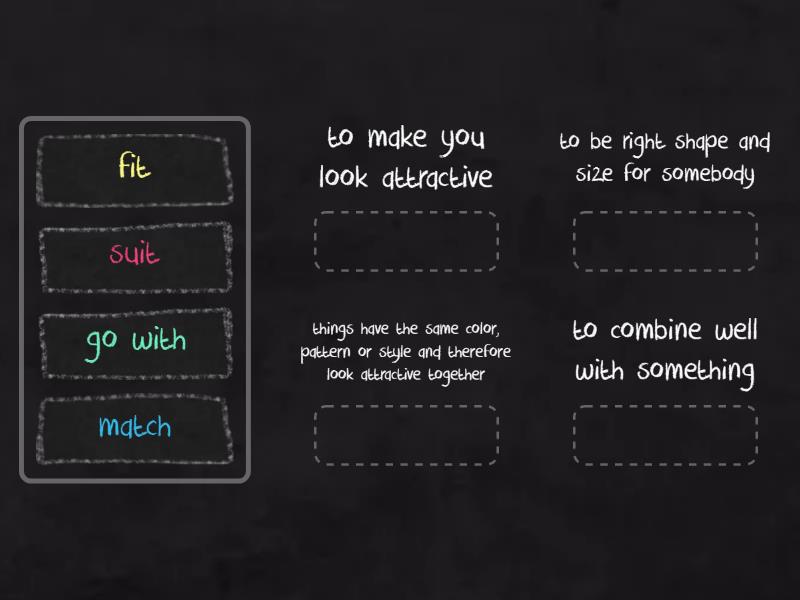 fit
suit
go with
match
to make you
look attractive
to be right shape and
size for somebody
things have the same color,
pattern or style and therefore
look attractive together
to combine well
with something